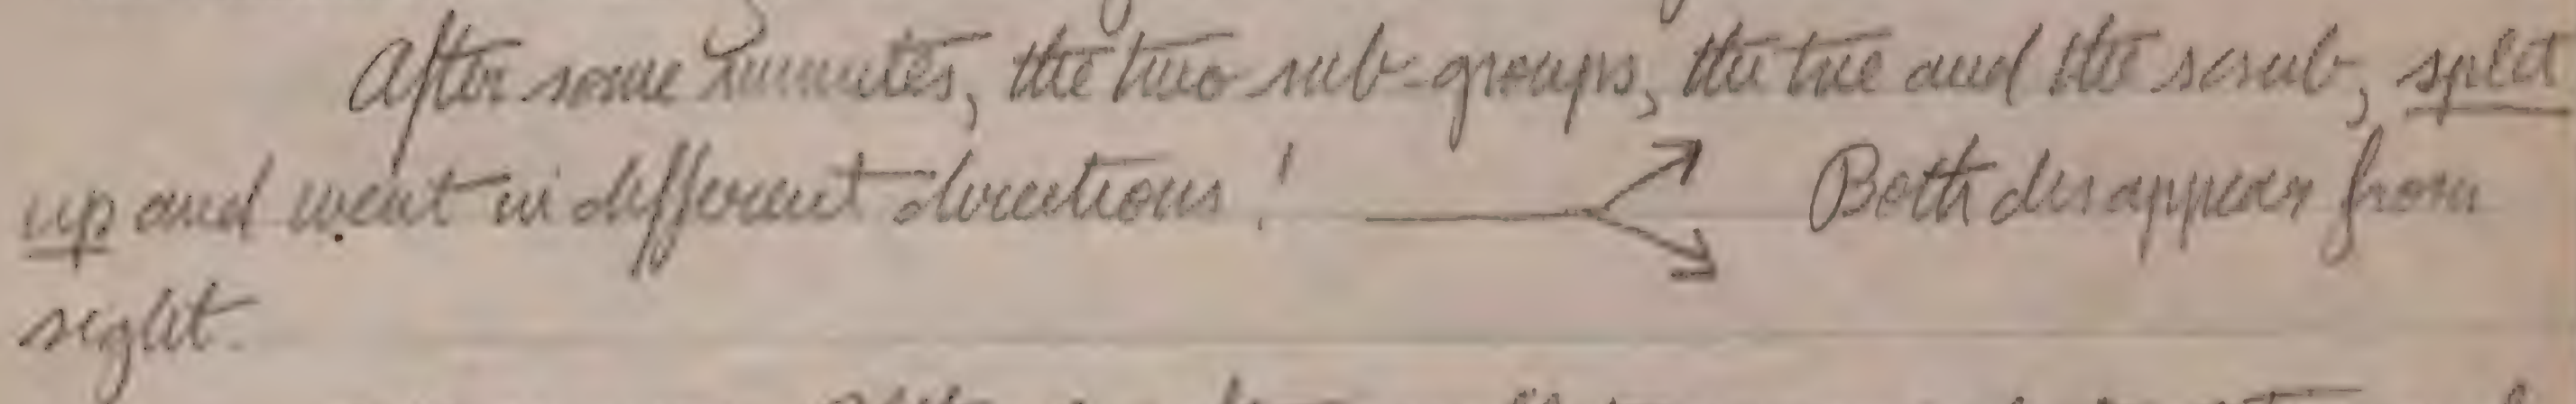 After some minutes, the two sub-groups, the tree and the scrub, split
up and went in different directions! Both disappear from
sight.